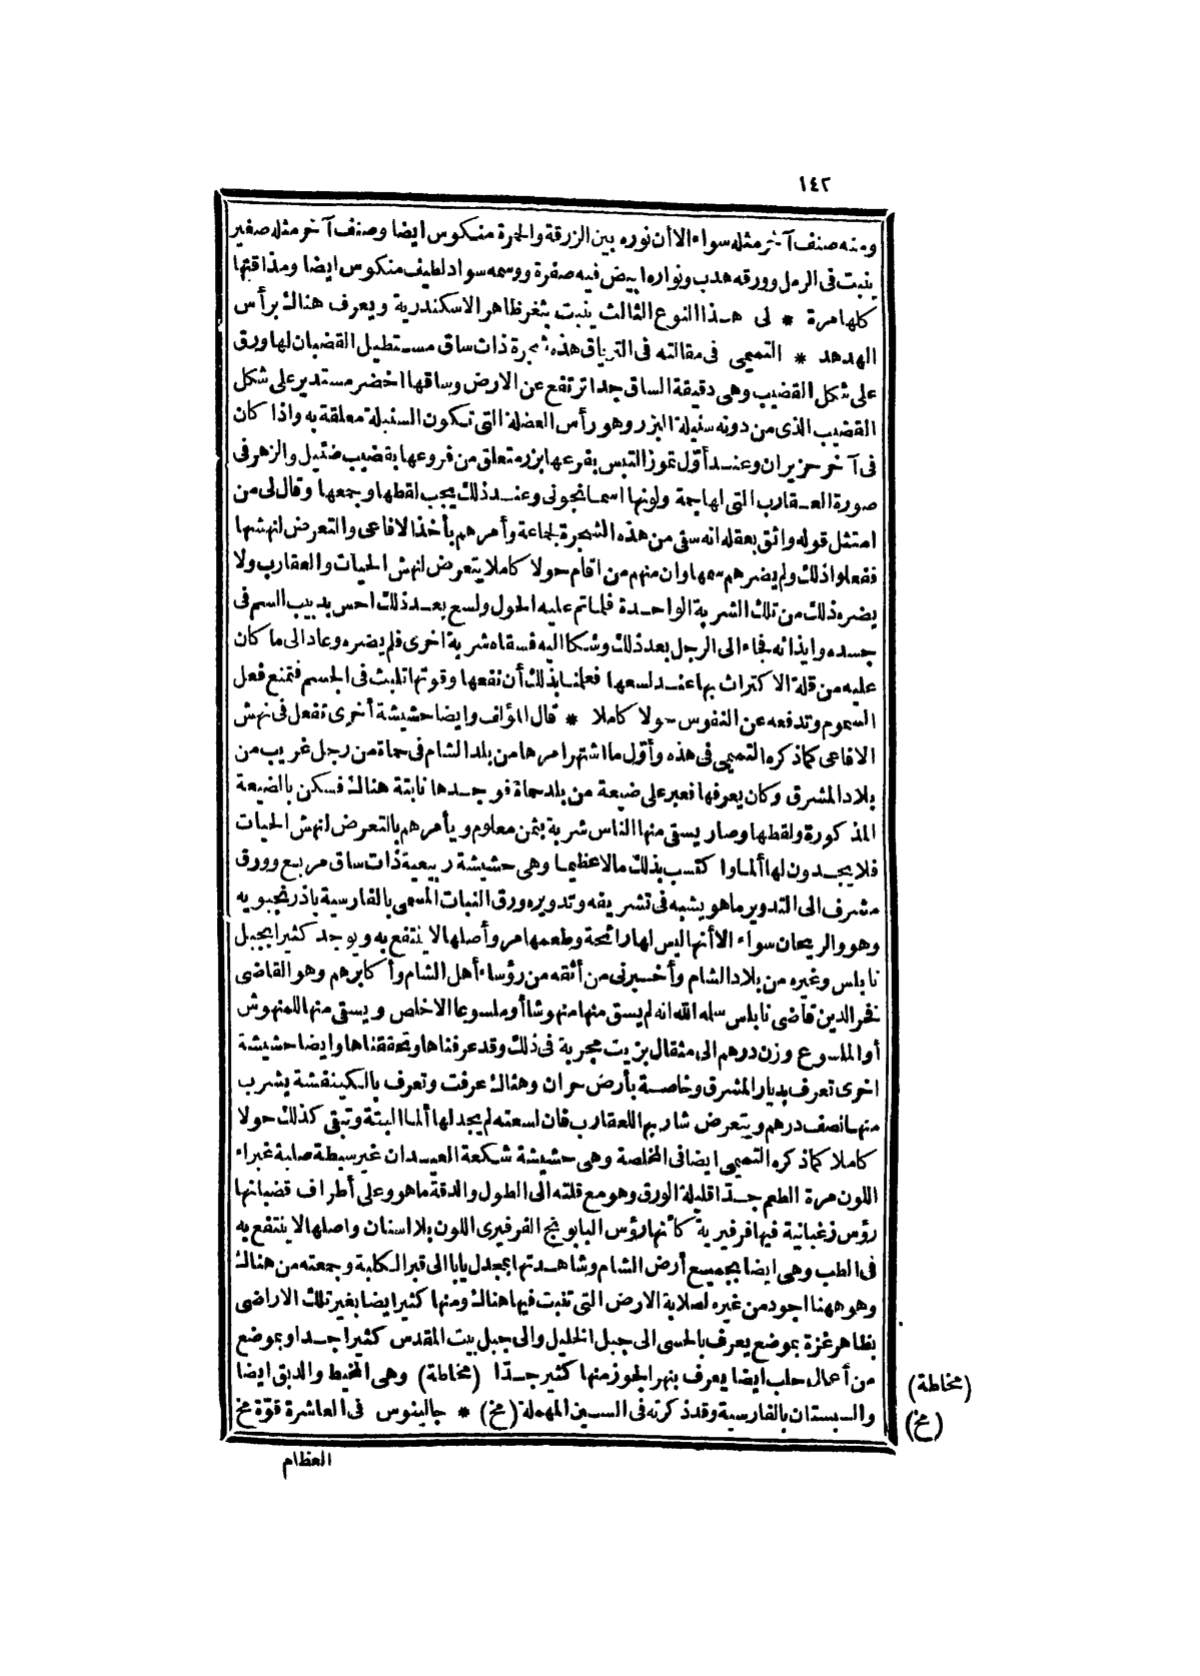 ١٤٢
ومنه صنف آخر مثله سواء الا أن نوره بين الزرقة والحمرة منكوس ايضا وصنف آخر مثله صغير
ينبت فى الرمل وورقه هدب ونواره ابيض فيه صفرة ووسمه سواد لطيف منكوس ايضا ومذاقتها
كلها مرة * لى هذا النوع الثالث ينبت بثغر ظاهر الاسكندرية ويعرف هناك برأس
الهدهد * التميمى فى مقالته فى الترياق هذه شجرة ذات ساق مستطيل القضبان لها ورق
على شكل القضيب وهى دقيقة الساق جدا ترتفع عن الارض وساقها اخضر مستدير على شكل
القضيب الذى من دونه سنبلة البزر وهو رأس العضلة التى تكون السنبلة معلقة به واذا كان
فى آخر حزيران وعند أول تموز التبس بفرعها بزر متعلق من فروعها بقضيب ضئيل والزهر فى
صورة العقارب التى لها جمة ولونها اسمانجونى وعند ذلك يجب لقطها وجمعها وقال لى من
امتثل قوله واثق بعقله انه سقى من هذه الشجرة لجماعة وأمرهم بأخذ الافاعى والتعرض لنهشها
ففعلوا ذلك ولم يضرهم سمها وان منهم من اقام حولا كاملا يتعرض لنهش الحيات والعقارب ولا
يضره ذلك من تلك الشربة الواحدة فلما تم عليه الحول ولسع بعد ذلك احس بدبيب السم فى
جسده وايذائه فجاء الى الرجل بعد ذلك وشكا اليه فسقاه شربة اخرى فلم يضره وعاد الى ما كان
عليه من قلة الاكتراث بها عند لسعها فعلمنا بذلك أن نفعها وقوتها تلبث فى الجسم فتمنع فعل
السموم وتدفعه عن النفوس حولا كاملا * قال المؤلف وايضا حشيشة أخرى تفعل فى نهش
الافاعى كما ذكره التميمى فى هذه وأول ما اشتهر امرها من بلد الشام فى حماة من رجل غريب من
بلاد المشرق وكان يعرفها فعبر على ضيعة من بلد حماة فوجدها نابتة هناك فسكن بالضيعة
المذكورة ولقطها وصار يسقى منها الناس شربة بثمن معلوم ويأمرهم بالتعرض لنهش الحيات
فلا يجدون لها ألما واكتسب بذلك مالا عظيما وهى حشيشة ربيعية ذات ساق مربع وورق
مشرف الى التدوير ما هو يشبه فى تشريفه وتدويره ورق النبات المسمى بالفارسية باذرنجبويه
وهو والريحان سواء الا أنها ليس لها رائحة وطعمها مر وأصلها لا ينتفع به ويوجد كثيرا بجبل
نابلس وغيره من بلاد الشام وأخبرنى من أثقه من رؤساء أهل الشام وأكابرهم وهو القاضى
فخر الدين قاضى نابلس سلمه الله انه لم يسق منها منهوشا أو ملسوعا الا خلص ويسقى منها للمنهوش
أو الملسوع وزن درهم الى مثقال بزيت مجربة فى ذلك وقد عرفناها وتحققناها وايضا حشيشة
اخرى تعرف بديار المشرق وخاصة بأرض حران وهناك عرفت وتعرف بالكينقشة يشرب
منها نصف درهم ويتعرض شاربها للعقارب فان لسعته لم يجد لها ألما البتة وتبقى كذلك حولا
كاملا كما ذكره التميمى ايضا فى المخلصة وهى حشيشة شكعة العيدان غير سبطة صلبة غبراء
اللون مرة الطعم جدا قليلة الورق وهو مع قلته الى الطول والدقة ما هو وعلى أطراف قضبانها
رؤس زغبانية فيها فرفيرية كأنها رؤس البابونج الفرفيرى اللون بلا اسنان واصلها لا ينتفع به
فى الطب وهى ايضا بجميع أرض الشام وشاهدتها بمجدل يابا الى قبر الكلبة وجمعته من هناك
وهو ههنا اجود من غيره لصلابة الارض التى تنبت فيها هناك ومنها كثير ايضا بغير تلك الاراضى
بظاهر غزة بموضع يعرف بالحسى الى جبل الخليل والى جبل بيت المقدس كثيرا جدا وبموضع
من أعمال حلب ايضا يعرف بنهر الجوز منها كثير جدا (مخاطة) وهى المخيط والدبق ايضا
والسبستان بالفارسية وقد ذكرته فى السين المهملة (مخ) * جالينوس فى العاشرة قوة مخ
(مخاطة)
(مخ)
العظام